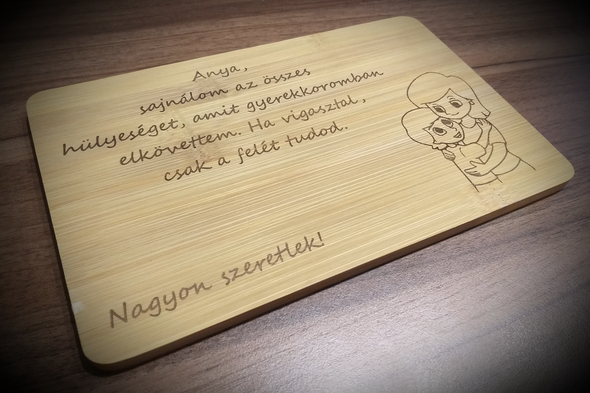 Anya,
sajnálom az összes
hülyeséget, amit gyerekkoromban
elkövettem. Ha vigasztal,
csak a felét tudod.
Nagyon szeretlek!